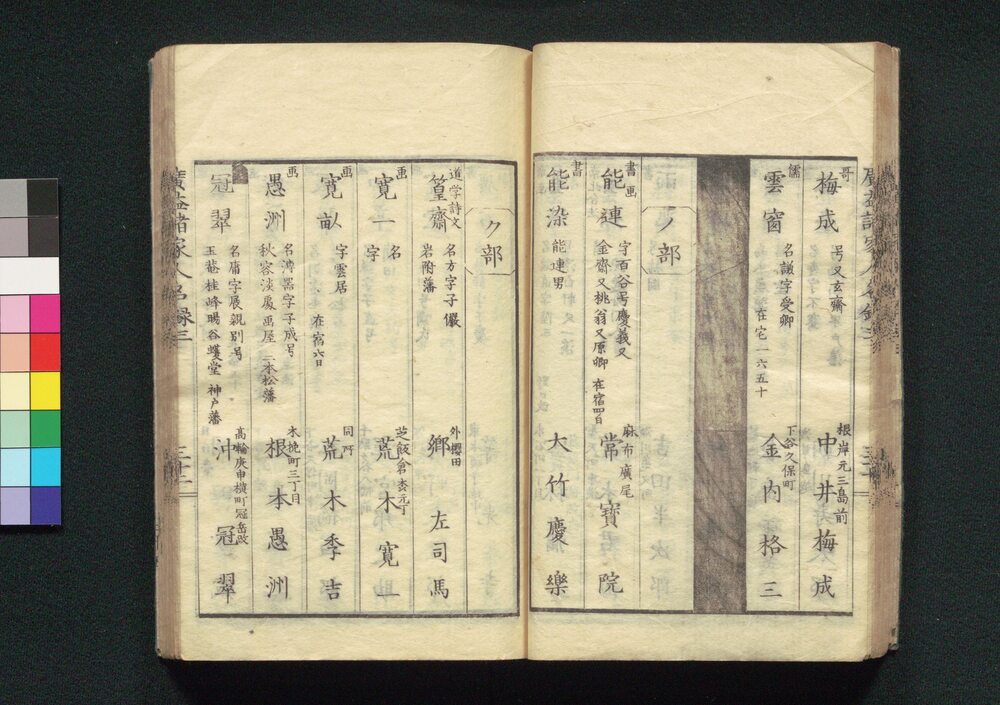 哥
梅成
号又玄齋
根岸元三島前
中井梅成
儒
雲窗
名譲字受卿
在宅一六五十
下谷久保町
金内格三
ノ部
書画
能連
字百谷号慶義又
金齋又桃翁又原卿 在宿四八日
麻布廣尾
常寶院
書
能染
能連男
大竹慶樂
廣益諸家人名録三
ク部
道学詩文
篁齋
名方字子儼
岩附藩
外櫻田
鄉左司馬
画
寛一
名
字
芝飯倉
荒木寛一
画
寛畝
字雲居
在宿六日
同所
荒木季吉
画
愚洲
名濤器字子成号
秋容淡慶画屋 二本松藩
木挽町三丁目
根本愚洲
冠翠
名庸字展親別号
玉菴桂峰暘谷蠖堂 神戸藩
高輪庚申横町冠岳改
沖冠翠
廣益諸家人名録三
三十二